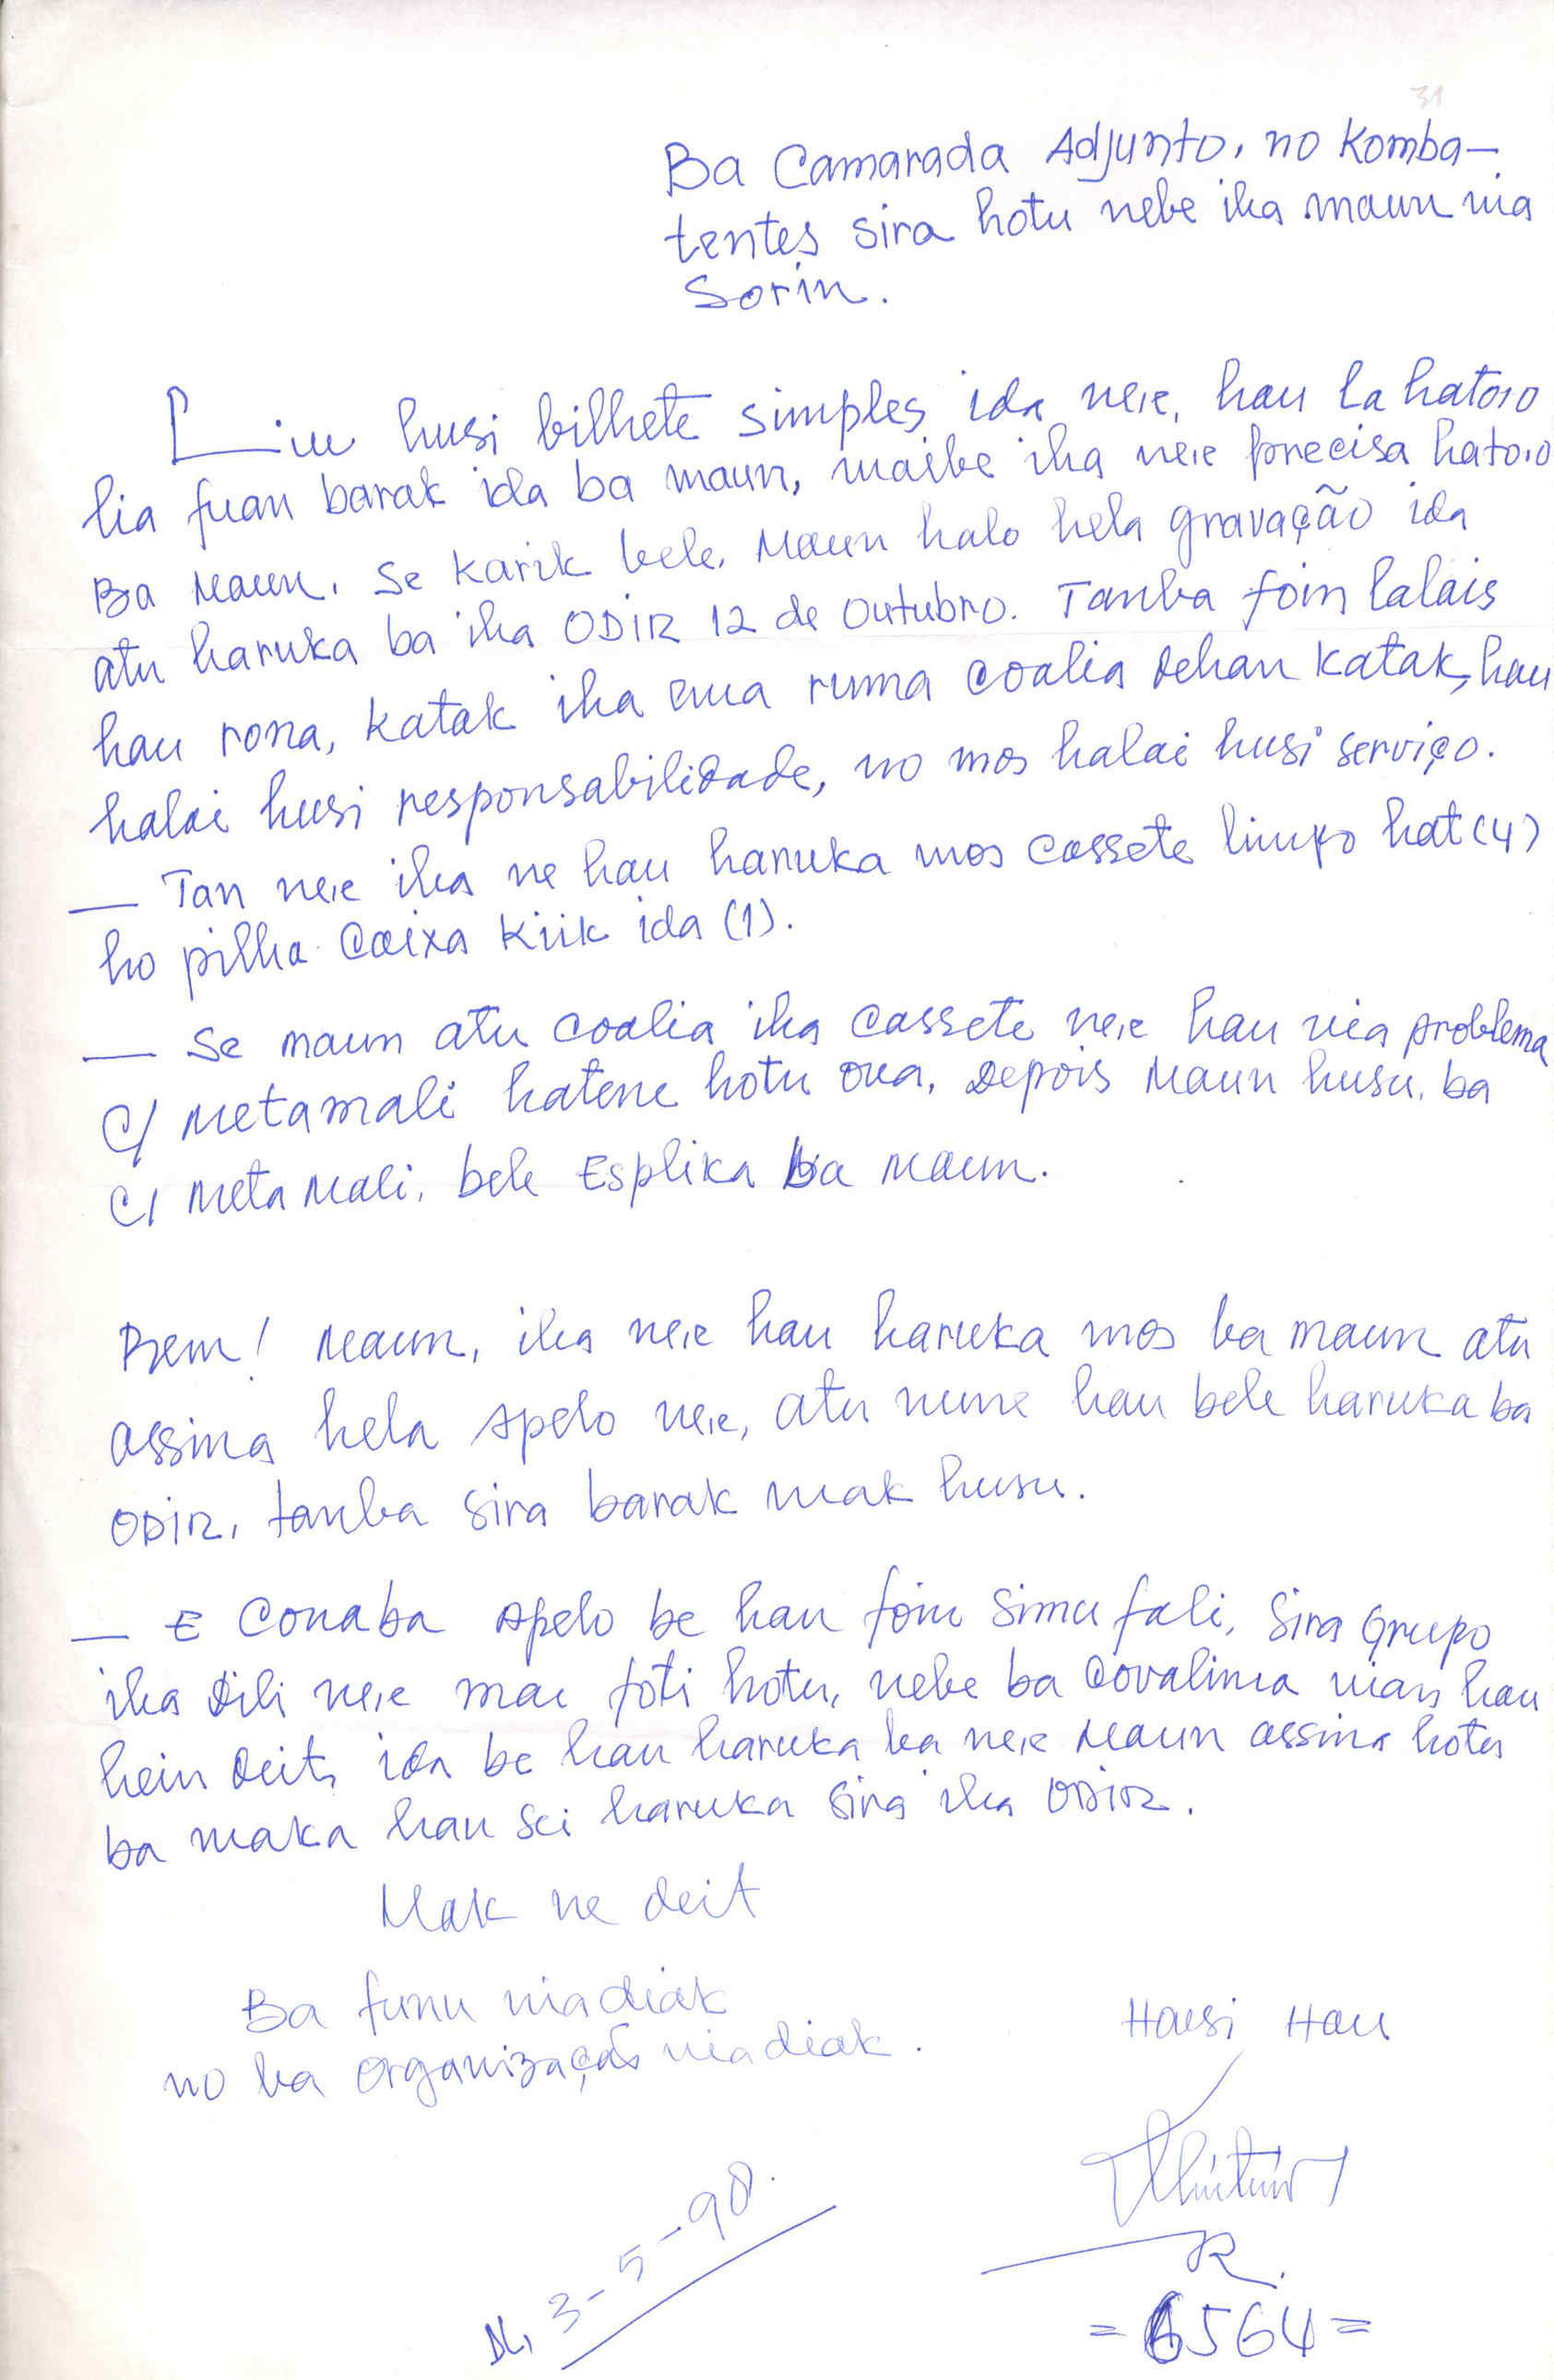 31
Ba Camarada Adjunto, no Komba-
tentes sira hotu nebe iha maun nia
Sorin.
Liu husi bilhete simples ida ne,e, hau la hato,o
lia fuan barak ida ba maun, maibe iha ne,e precisa hato,o
Ba Maun, Se karik bele, Maun halo hela gravação ida
atu haruka ba iha ODIR 12 de Outubro. Tanba foin lalais
hau rona, katak iha ema ruma coalia dehan katak, hau
halai husi responsabilidade, no mos halai husi serviço.
— Tan ne,e iha ne hau haruka mos cassete limpo hat (4)
ho pilha caixa kiik ida (1).
— Se maun atu coalia iha cassete ne,e hau nia problema
C/ Metamali hatene hotu ona, Depois Maun husu, ba
C/ Meta Mali, bele Esplika ba Maun.
Bem! Maun, iha ne,e hau haruka mos ba maun atu
assina hela Apelo ne,e, atu nune hau bele haruka ba
ODIR, tanba sira barak mak husu.
— E Conaba Apelo be hau foin simu fali, Sira grupo
iha Dili ne,e mai foti hotu, nebe ba Covalima nian hau
hein deit, ida be hau haruka ba ne,e Maun assina hotu
ba maka hau sei haruka sira iha ODIR.
Mak ne deit
Ba funu nia diak
no ba organização nia diak.
Husi Hau
R.
= 6564 =
DL, 3-5-98.